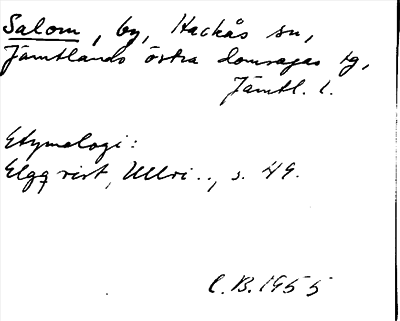 Salom, by, Hackås sn,
Jämtlands östra domsagas tg,
Jämtl. l.
Etymologi:
Elgqvist, Ullvi.., s. 49.
C.B. 1955